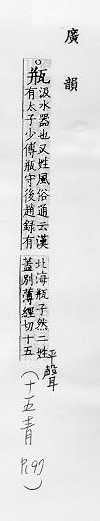 廣韻
○瓶
汲水器也又姓風俗通云漢
有太子少傅瓶守後趙錄有
北海瓶子然二姓
蓋別薄經切十五
平聲
(十五青 P.97)